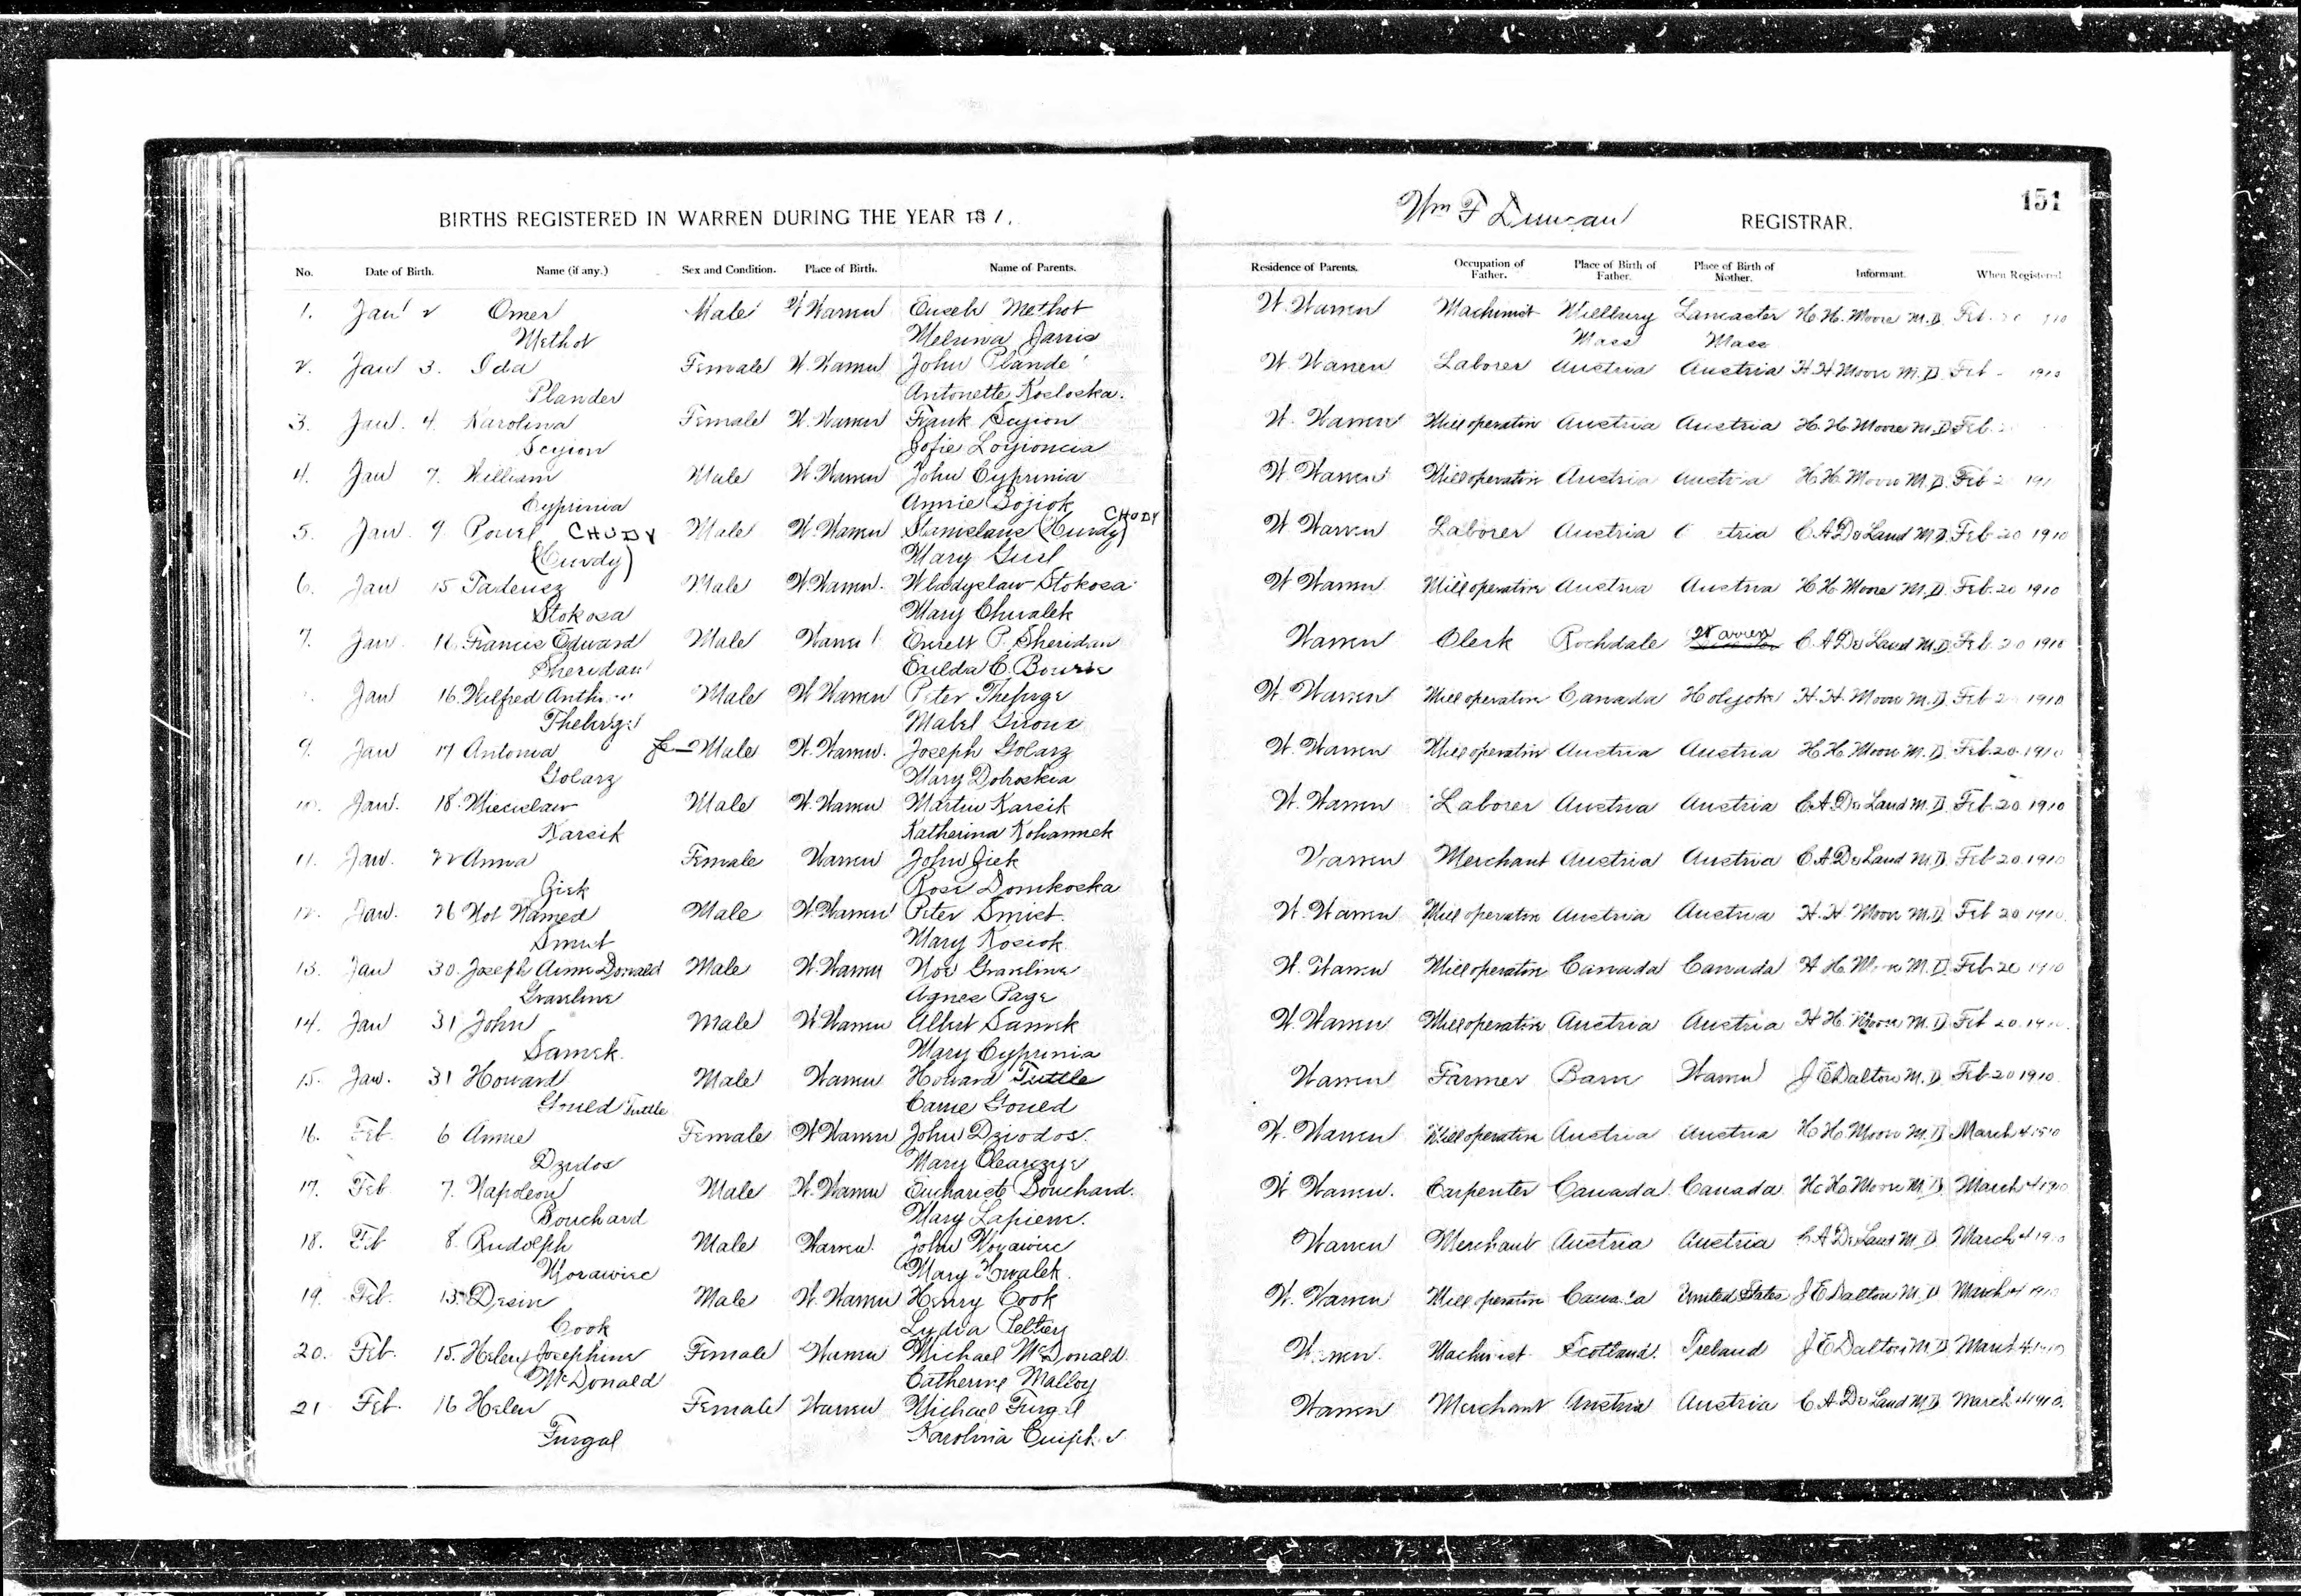 BIRTHS REGISTERED IN WARREN DURING THE YEAR
Wm F Duncan REGISTRAR. 151
No. Date of Birth. Name (if any.) Sex and Condition. Place of Birth. Name of Parents. Residence of Parents. Occupation of Father. Place of Birth of Father. Place of Birth of Mother. Informant. When Registered
1. Jan 2 Omer Male W Warren Methot W. Warren Machinist Millbury Lancaster H. H. Moore M.D. Feb.
Methot Melvina Jarvis Mass Mass
2. Jan 3. Ida Female W. Warren John Plande W. Warren Laborer Austria Austria H. H. Moore M.D. Feb 1910
Plander Antonette Kosloska.
3. Jan. 4. Karolina Female W. Warren Frank Scyion W. Warren Mill operative Austria Austria H. H. Moore M.D. Feb.
Scyion Zofie
4. Jan 7. William Male W. Warren John Cyprinia W. Warren Mill operative Austria Austria H. H. Moore M.D. Feb
Cyprinia Annie Bojiok
5. Jan. 9. Powel CHUDY Male W. Warren Stanislaus (Curdy) CHUDY W. Warren Laborer Austria C. A. De Land M.D. Feb 20 1910
(Curdy) Mary
6. Jan 15 Tadeusz Male W. Warren. Wladyslaw Stokosa W. Warren Mill operative Austria Austria H. H. Moore M.D. Feb. 20 1910
Stokosa Mary Chwalek
7. Jan 16 Francis Edward Male Warren P. Sheridan Warren Clerk Rochdale Warren C. A. De Land M.D. Feb. 20 1910
Sheridan Exilda C.
Jan 16. Wilfred Male W Warren Peter W. Warren Mill operative Canada Holyoke H. H. Moore M.D. Feb 1910
Mabel Giroux
9. Jan 17 Antonia fe-Male W. Warren. Joseph Golarz W. Warren Mill operative Austria Austria H. H. Moore M.D. Feb. 20. 1910
Golarz Mary Dobroskia
10. Jan. 18. Miecislaw Male W. Warren Martin Karcik W. Warren Laborer Austria Austria C. A. De Land M.D. Feb. 20 1910
Karcik Katherina
11. Jan. 22 Anna Female Warren John Ziek Warren Merchant Austria Austria C. A. De Land M.D. Feb 20. 1910
Ziek Rose Domkoska
12. Jan. 26 Not Named Male W. Warren Peter Smiet W. Warren Mill operative Austria Austria H. H. Moore M.D. Feb 20 1910
Mary Kosiok
13. Jan 30. Joseph Aime Donald Male W. Warren Noe Graveline W. Warren Mill operative Canada Canada H. H. Moore M.D. Feb. 20 1910
Graveline Agnes Page
14. Jan 31 John Male W. Warren Albert Samek W. Warren Mill operative Austria Austria H. H. Moore M.D. Feb 20. 1910.
Samek. Mary Cyprinia
15. Jan. 31 Howard Male Warren Howard Tuttle Warren Farmer Barre Warren J E Dalton M.D. Feb. 20 1910.
Gould Tuttle Carrie Gould
16. Feb. 6 Annie Female W Warren John Dziodos. W. Warren Mill operative Austria Austria H. H. Moore M.D. March 4 1910
Mary
17. Feb 7. Napoleon Male W. Warren Euchariste Bouchard. W. Warren. Carpenter Canada Canada H. H. Moore M.D. March 4 1910
Bouchard Mary Lapierre.
18. Feb 8. Rudolph Male Warren. John Warren Merchant Austria Austria C. A. De Land M.D. March 4 1910
Mary Kowalek.
19. Feb. 13. Male W. Warren Henry Cook W. Warren Mill operative Canada United States J E Dalton M.D. March 4 1910
Cook Lydia Peltier
20. Feb. 15. Helen Josephine Female Warren Michael McDonald. Warren. Machinist Scotland. Ireland J E Dalton M.D. March 4 1910
McDonald Catherine Malloy
21 Feb. 16 Helen Female Warren Michael Furgal Warren Merchant Austria Austria C. A. De Land M.D. March 4 1910.
Furgal Karolina